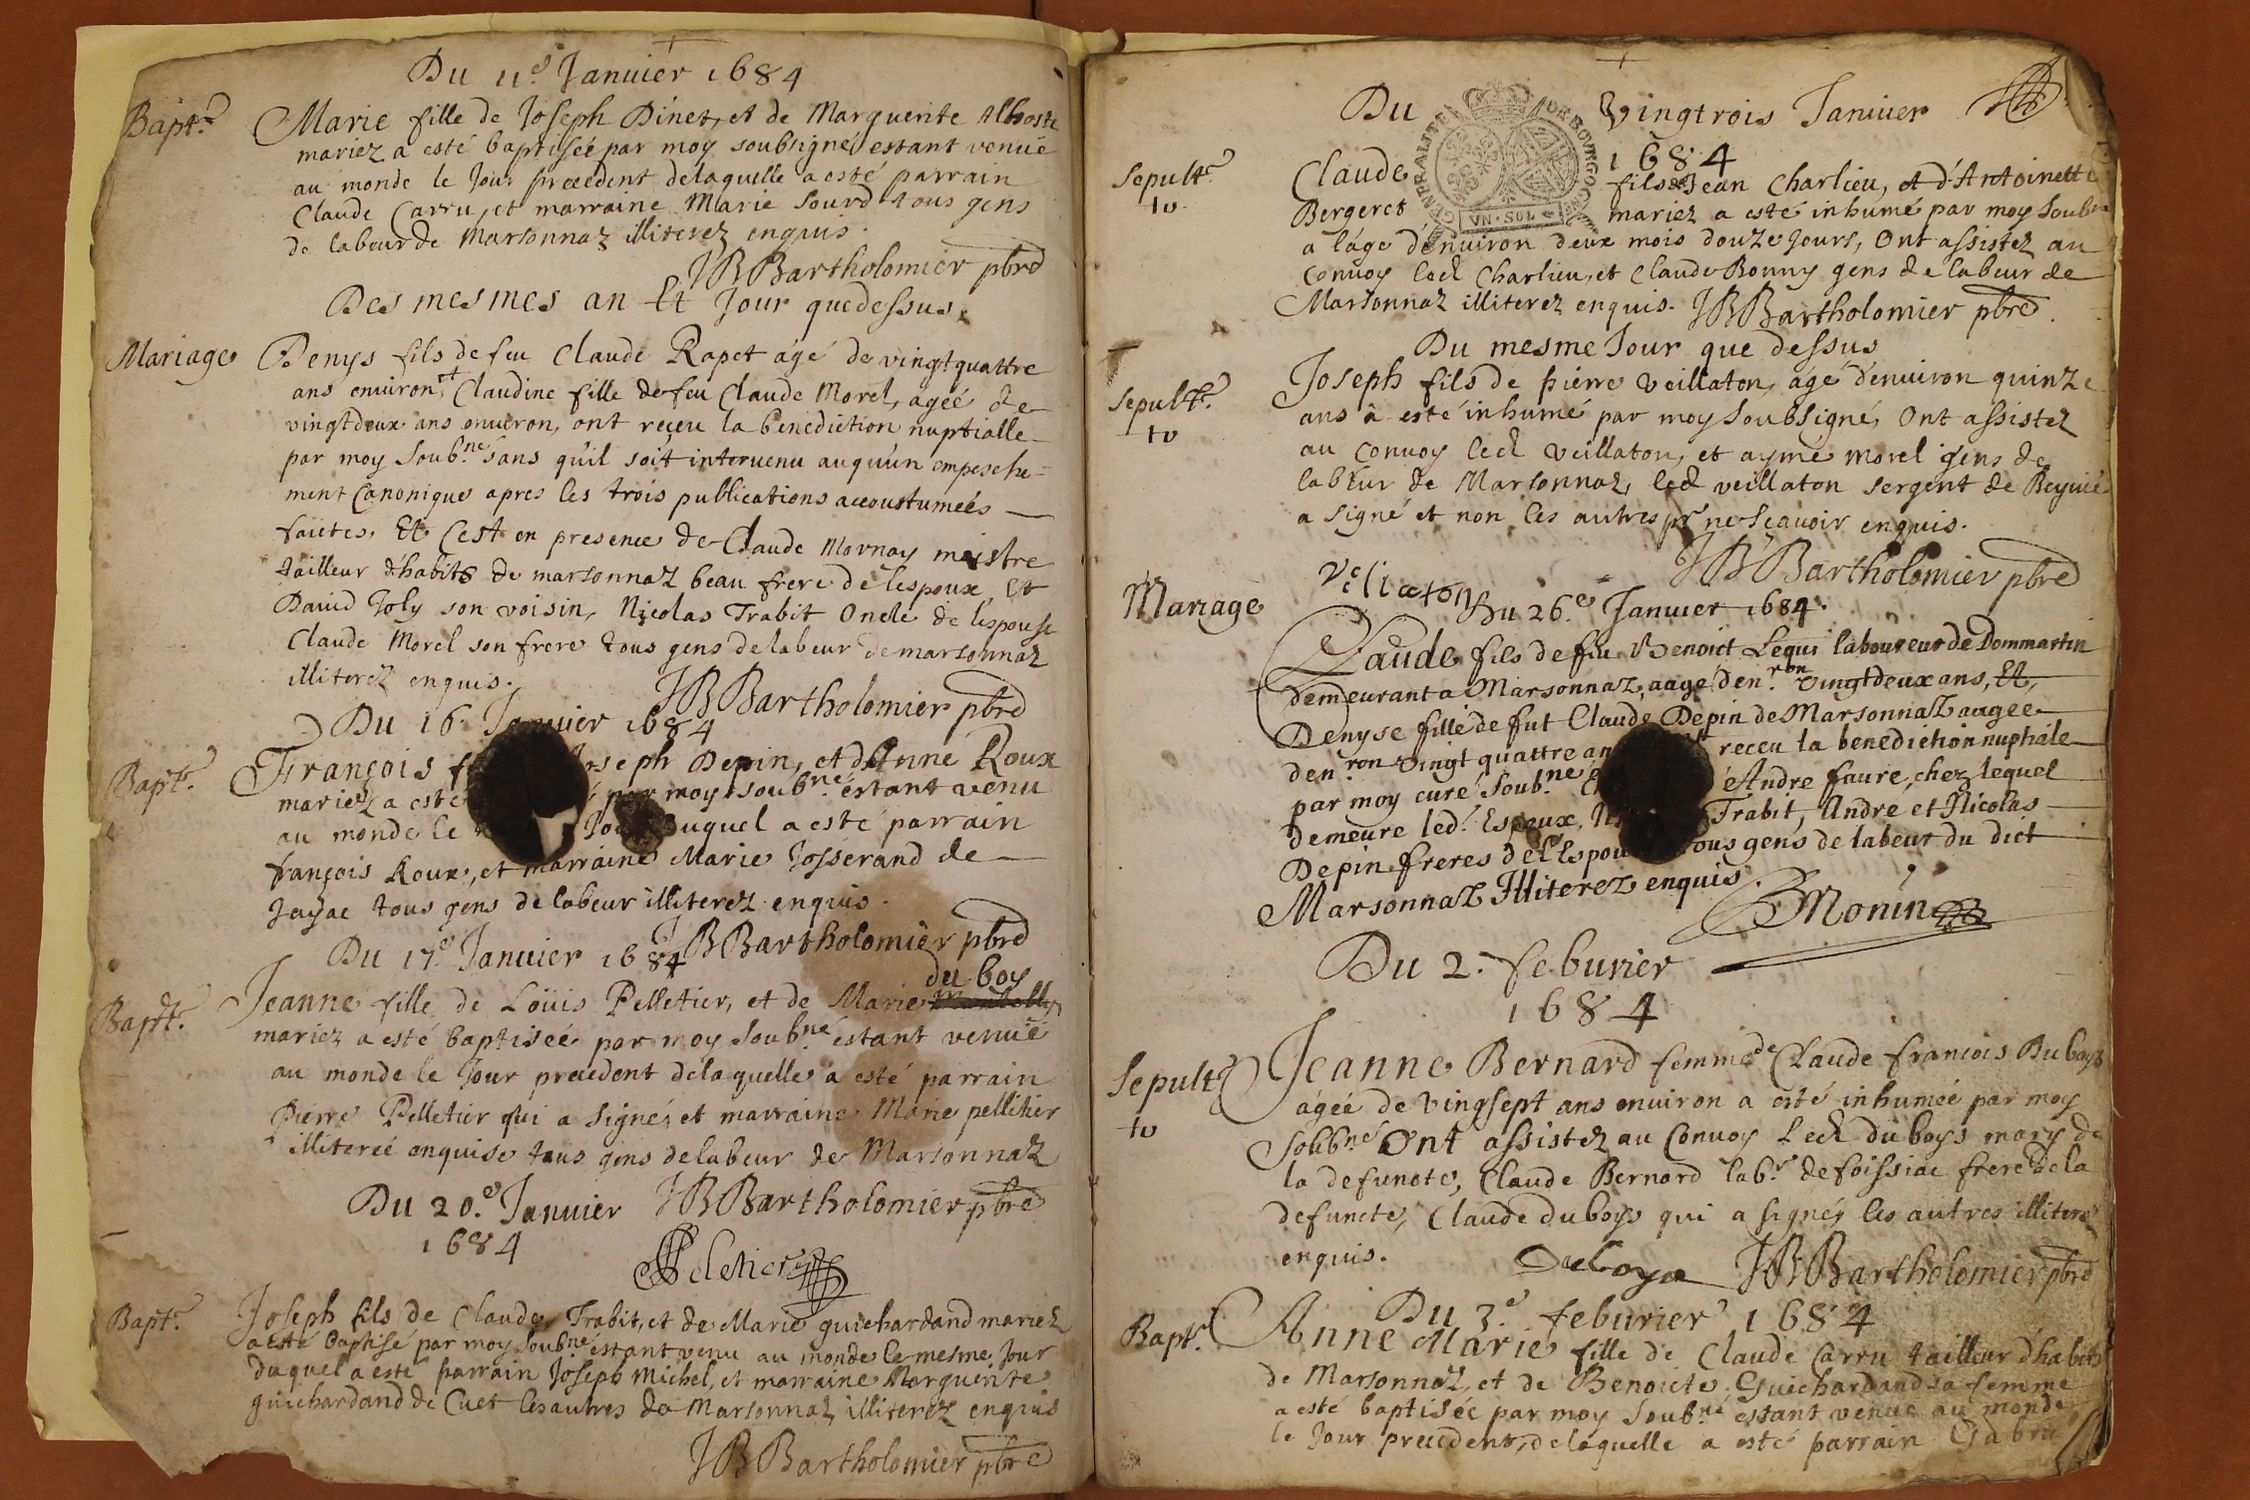 Du 11e. Januier 1684
Bapt.e Marie fille de Joseph Dinet, et de Marguerite
mariez a esté baptiséé par moy soubsigné estant venuë
au monde le Jour precedent de laquelle a esté parrain
Claude Carru, et marraine Marie Sourd tous gens
de labeur de Marsonnaz illiterez enquis.
JB Bartholomier pbre
Des mesmes an Et Jour que dessus.
Mariage Denys fils de feu Claude Rapet ágé de vingt quattre
ans enuiron, et Claudine fille de feu Claude Morel, agéé de
vingt deux ans enuiron, ont reçeu la benediction nuptialle
par moy Soub.né sans qu'il soit interuenu auqu'un empesche=
ment Canonique apres les trois publications accoustuméés
faictes, Et C'est en presence de Claude Mornay meistre
tailleur d'habits de marsonnaz beau frere de l'espoux, Et
Dauid Joly son voisin, Nicolas Trabit Oncle de l'espouse
Claude Morel son frere tous gens de labeur de marsonnaz
illiterez enquis.
JB Bartholomier pbre
Du 16 Januier 1684
Bapt.e François Joseph Depin, et d'Anne Roux
mariez a esté par moy soub.né estant venu
au monde le Jour duquel a esté parrain
françois Roux, et marraine Marie Josserand de
Jayac tous gens de labeur illiterez enquis.
JB Bartholomier pbre
Du 17e. Januier 1684
du boy
Bapt.e Jeanne fille de Loüis Pelletier, et de Marie
mariez a esté baptiséé par moy Soub.né estant venuë
au monde le Jour precedent de laquelle a esté parrain
Pierre Pelletier qui a signé, et marraine Marie pelletier
illiteréé enquise tous gens de labeur de Marsonnaz
Du 20.e Januier JB Bartholomier pbre
1684
Peletier
Bapt.e Joseph fils de Claude Trabit, et de Marie guichardand mariez
a esté baptisé par moy Soub.né estant venu au monde le mesme Jour
duquel a esté parrain Joseph Michel, et marraine Marguerite
guichardand de Cuet les autres de Marsonnaz illiterez enquis
JB Bartholomier pbre
Du Vingtrois Januier
1684
GENERALITE DE BOURGOGNE
VN·SOL
Sepult.e Claude fils de Jean Charlieu, et d'Antoinette
to Bergeret mariez a esté inhumé par moy Soub.né
a l'áge d'enuiron deux mois douze Jours, Ont assistez au
Conuoy led Charlieu, et Claude Bonny gens de labeur de
Marsonnaz illiterez enquis. JB Bartholomier pbre
Du mesme Jour que dessus
Sepult.e Joseph fils de pierre Veillaton, ágé d'enuiron quinze
to ans à esté inhumé par moy Soubsigné, Ont assistez
au Conuoy led veillaton, et aymé Morel gens de
labeur de Marsonnaz, led veillaton sergent de
a signé et non les autres pr ne Sçauoir enquis.
JB Bartholomier pbre
Veliaton
Mariage Du 26.e Januier 1684.
Claude fils de feu Benoict Lequi laboureur de Dommartin
demeurant a Marsonnaz, aagé d'en.ron Vingt deux ans, Et
Denyse fille de fut Claude Depin de Marsonnaz aagee
d'en.ron Vingt quattre ans receu la benediction nuptiale
par moy curé Soub.né Andre faure, chez lequel
demeure led. Espoux, Trabit, Andre et Nicolas
Depin freres de l'Espouse tous gens de labeur du dict
Marsonnaz Illiterez enquis
Monin
Du 2. feburier
1684
Sepult.e Jeanne Bernard femme de Claude francois Duboys
to ágéé de Vingsept ans enuiron a esté inhuméé par moy
Soubné Ont assistez au Conuoy Led duboys mary de
la defuncte, Claude Bernard lab.r de foissiac frere de la
defuncte, Claude duboys qui a signé, les autres illiterez
enquis. Duboys JB Bartholomier pbre
Du 3.e feburier 1684
Bapt.e Anne Marie fille de Claude Carru tailleur d'habits
de Marsonnaz, et de Benoicte Guichardand sa femme
a esté baptiséé par moy Soub.né estant venuë au monde
le Jour precedent, de laquelle a esté parrain